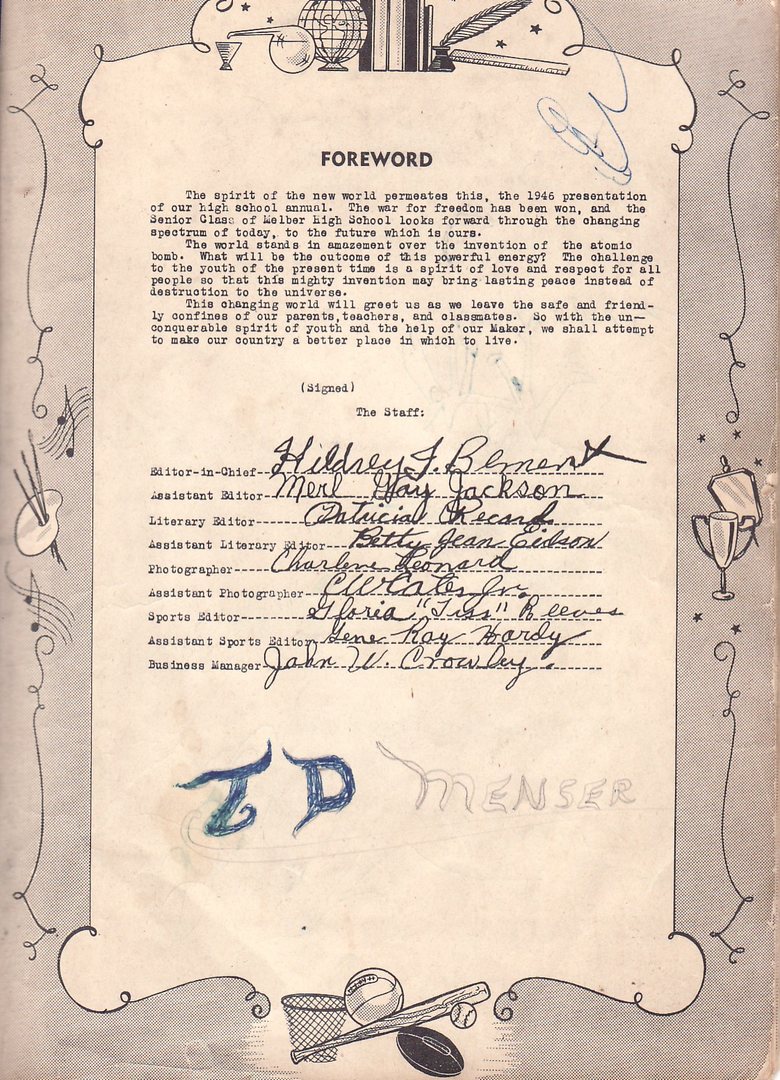 FOREWORD
The spirit of the new world permeates this, the 1946 presentation
of our high school annual. The war for freedom has been won, and the
Senior Class of Melber High School looks forward through the changing
spectrum of today, to the future which is ours.
The world stands in amazement over the invention of the atomic
bomb. What will be the outcome of this powerful energy? The challenge
to the youth of the present time is a spirit of love and respect for all
people so that this mighty invention may bring lasting peace instead of
destruction to the universe.
This changing world will greet us as we leave the safe and friend-
ly confines of our parents,teachers, and classmates. So with the un-
conquerable spirit of youth and the help of our Maker, we shall attempt
to make our country a better place in which to live.
(Signed)
The Staff:
Editor-in-Chief--Hildrey J. Bement
Assistant Editor Merl Gay Jackson
Literary Editor------Patricia Record
Assistant Literary Editor---Betty Jean Eidson
Photographer--Charlene Leonard
Assistant Photographer--CW Cates Jr.
Sports Editor--------Gloria "Tiss" Reeves
Assistant Sports Editor Gene Ray Hardy
Business Manager John W. Crowley.
T D MENSER